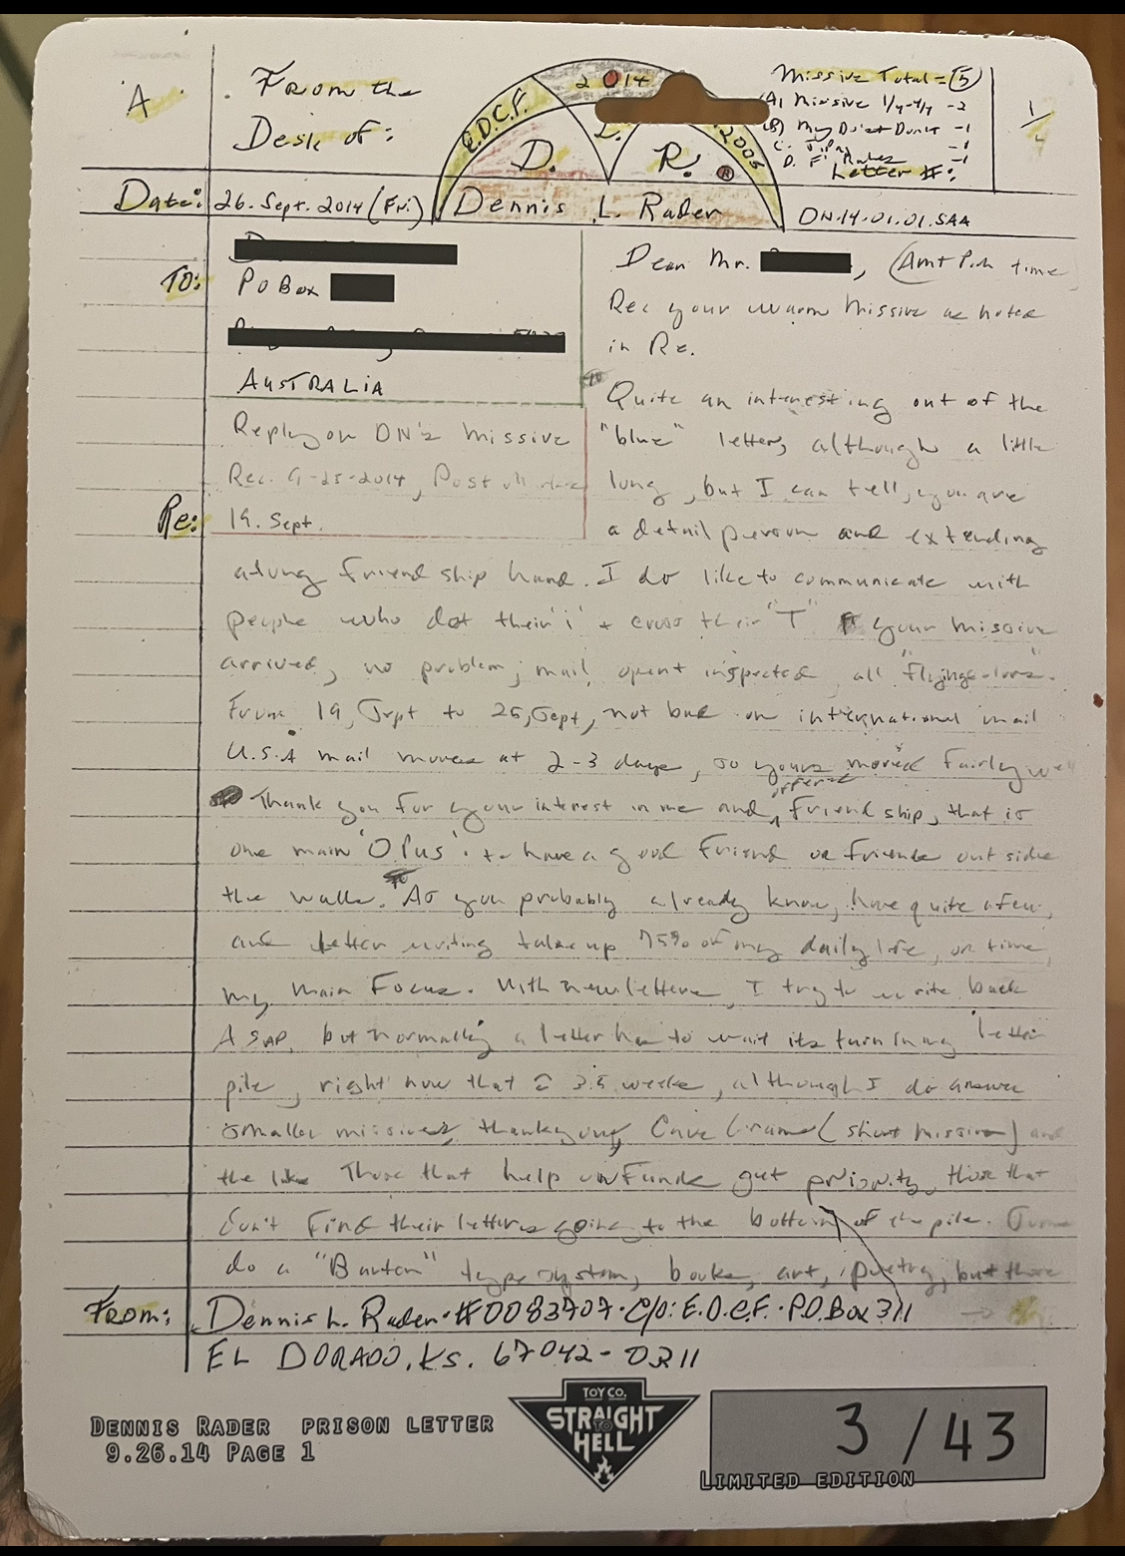 A
From the
Desk of:
E.D.C.F. 2014 2005
D. L. R. ®
Dennis L. Rader
Missive Total = (5)
(A) Missive 1/4-4/4 -2
(B) My Diet Don't -1
C. -1
D. F. Rules -1
Letter #:
1/
Date: 26. Sept. 2014 (Fri)
DN.14.01.01.SAA
TO:
PO Box
AUSTRALIA
Re:
Reply on DN's Missive
Rec. 9-25-2014, Post
19. Sept.
Dear Mr. , ( time
Rec your warm Missive as noted
in Re.
Quite an interesting out of the
"blue" letter, although a little
long, but I can tell, you are
a detail person and extending
along friend ship hand. I do like to communicate with
people who dot their 'i' + cross their "T" your missive
arrived, no problem, mail opent inspected, all
From 19, Sept to 25, Sept, not bad on international mail
U.S.A mail moves at 2-3 days, so yours moved fairly well
Thank you for your interest in me and offered friend ship, that is
one main 'OPus' to have a good friend or friends out side
the walls. As you probably already know, have quite a few,
and letter writing take up 75% of my daily life, or time,
my main Focus. With new letters, I try to write back
ASAP, but normally a letter has to wait its turn in my letter
pile, right now that 3.5 weeks, although I do answer
smaller missives, thank you, (short missive) and
the like Those that help w/Funds get priority, those that
don't find their letters going to the bottom of the pile. Some
do a "Barter" type system, books, art, poetry, but those
From: Dennis L. Rader·#0083707·C/O: E.D.C.F.·P.O.Box 311 →
EL DORADO, KS. 67042-0311
DENNIS RADER PRISON LETTER
9.26.14 PAGE 1
TOY CO.
STRAIGHT
TO
HELL
3/43
LIMITED EDITION